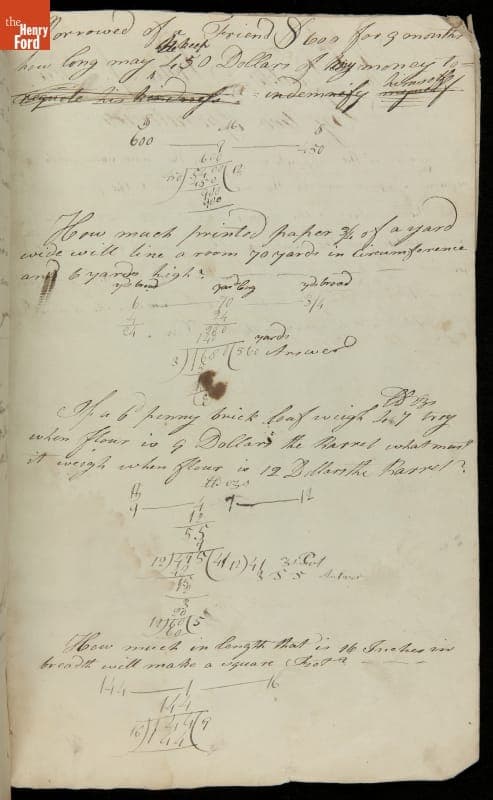 the
Henry
Ford
Borrowed of a Friend $ 600 for 9 months
he keep
how long may 450 Dollars of my money to
requite his kindness = indemnify himself myself
$ M $
600 9 450
600
450)5400(12
450
900
900
How much printed paper 3/4 of a yard
wide will line a room 70 yards in circumference
and 6 yards high?
yds broad yards long yd broad
6 70 3/4
4 24
24 280
140 yards
560 Answer
lb oz
If a 6 penny brick loaf weigh 4 7 troy
when flour is 9 Dollars the Barrel what must
it weigh when flour is 12 Dollars the Barrel?
lb oz
9 4 7 12
12
55
9
12)495(41 12)41
48 3 5 5 Answer
15
12
3
20
12)60(5
60
How much in length that is 16 Inches in
breadth will make a square Foot?
144 1 16
144
16)144(9
144